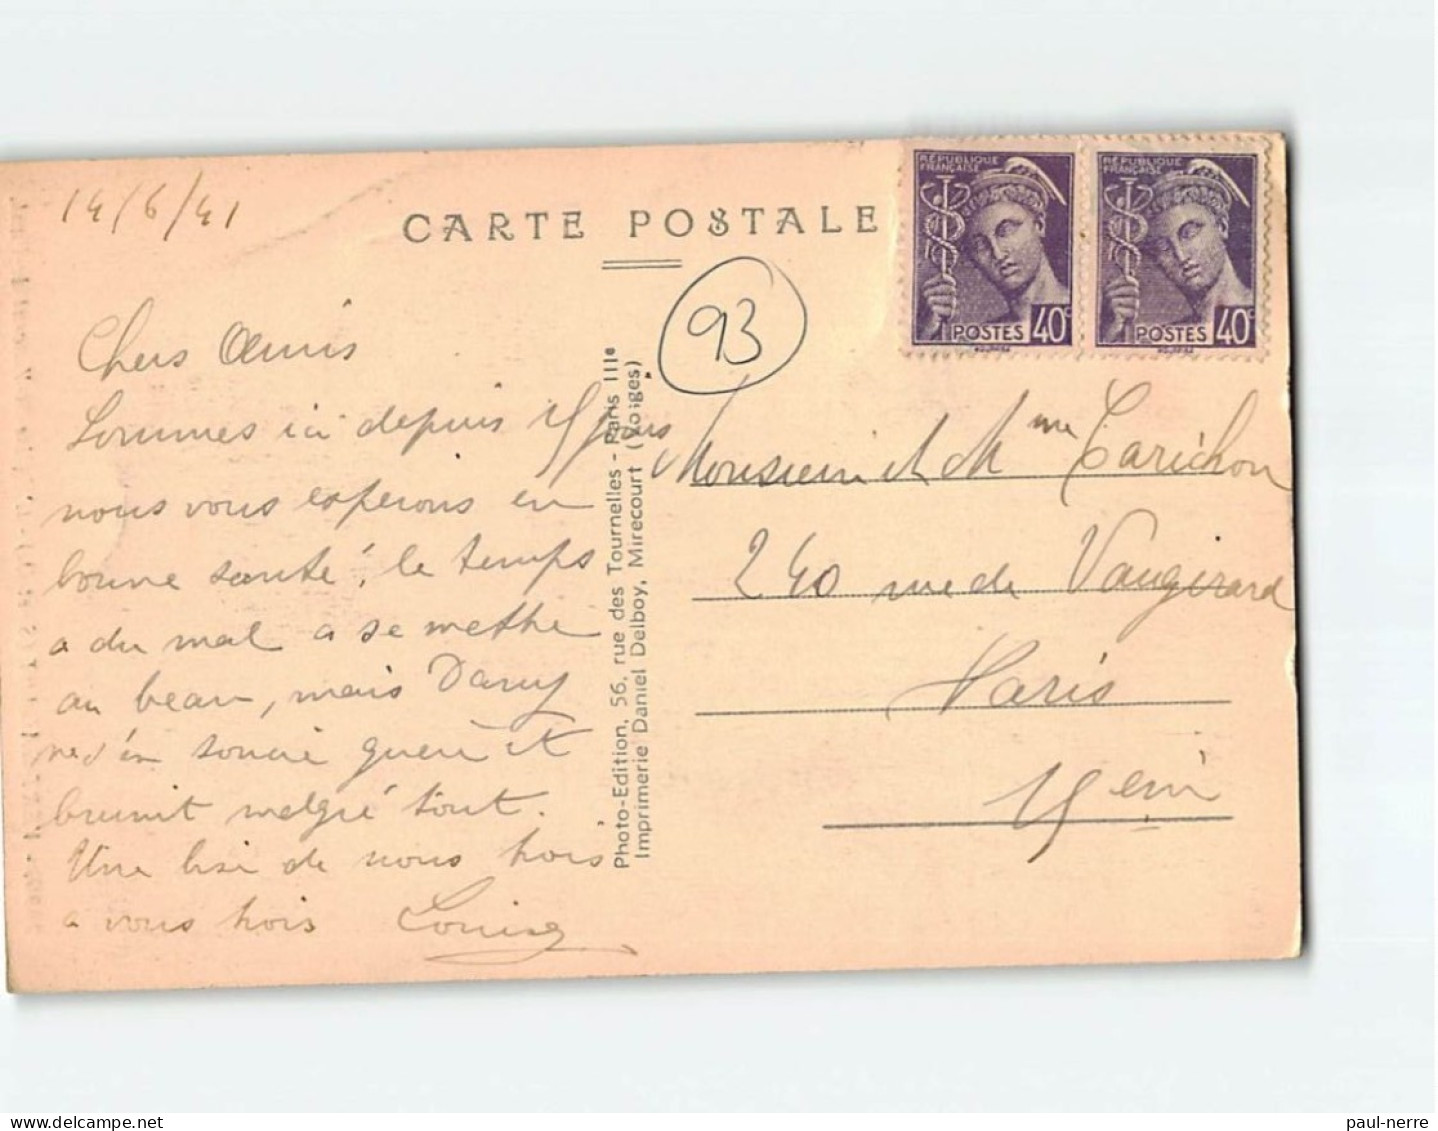 14/6/41
CARTE POSTALE
RÉPUBLIQUE
FRANÇAISE
POSTES 40c
RÉPUBLIQUE
FRANÇAISE
POSTES 40c
93
Chers Amis
Sommes ici depuis 15 jours
nous vous esperons en
bonne santé, le temps
a du mal a se metthe
au beau, mais Dany
ne s'en soucie guere et
brunit malgré tout.
Une bise de nous trois
a vous trois Louise
Photo-Edition, 56, rue des Tournelles - Paris IIIe
Imprimerie Daniel Delboy, Mirecourt (Vosges)
Monsieur et Mme Carichon
240 rue de Vaugirard
Paris
15 eme
paul-nerre